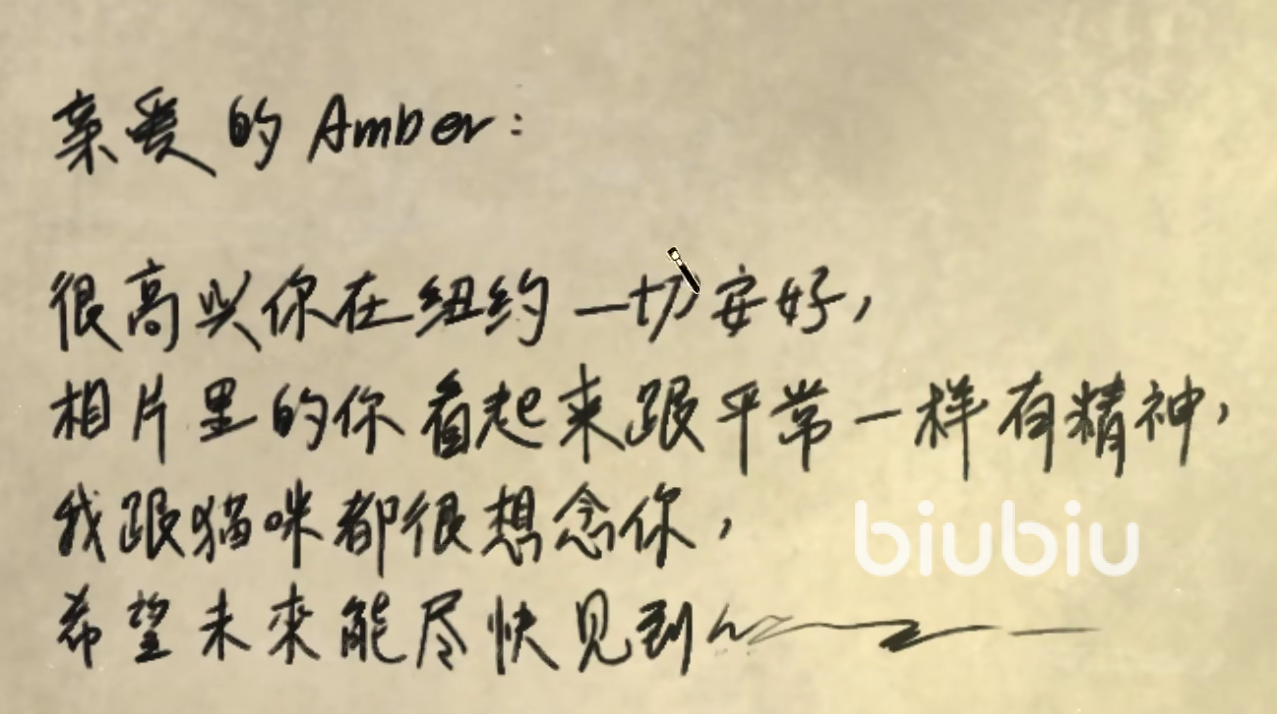 亲爱的Amber:
很高兴你在纽约一切安好,
相片里的你看起来跟平常一样有精神,
我跟猫咪都很想念你,
biubiu
希望未來能尽快见到